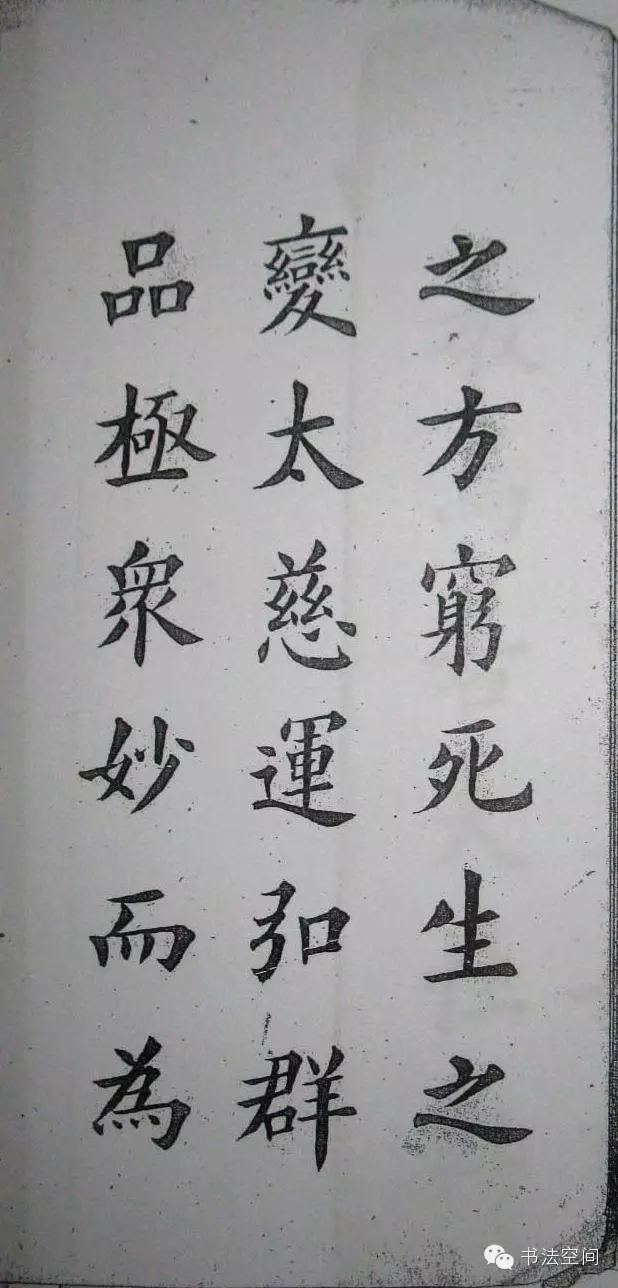 之方窮死生之
變太慈運弘群
品極衆妙而為
书法空间